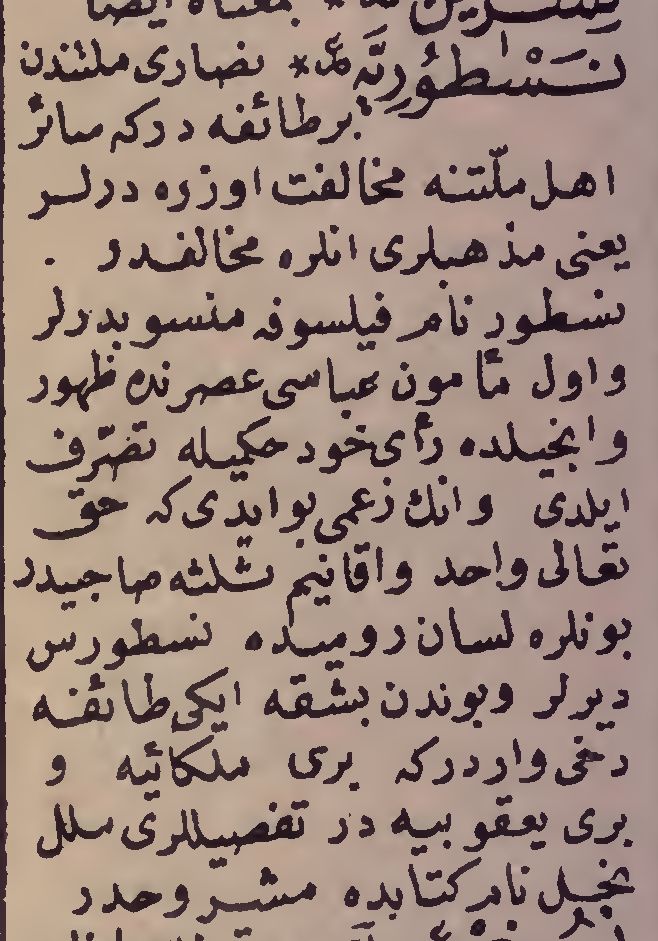 بمعناه ايضا
نَسْطُورِيَّه * نصارى ملتندن
برطائفه دركه سائر
اهل ملّتنه مخالفت اوزره درلر
يعنى مذهبلرى انلره مخالفدر
نسطور نام فيلسوفه منسوبدرلر
واول مأمون عباسى عصرنده ظهور
وانجيلده رأى خود حكميله تصرّف
ايلدى وانك زعمى بوايدى كه حق
تعالى واحد واقانيم ثلثه صاحبيدر
بونلره لسان روميده نسطورس
ديرلر وبوندن بشقه ايكى طائفه
دخى واردركه برى ملكائيه و
برى يعقوبيه در تفصيللرى ملل
نحل نام كتابده مشروحدر